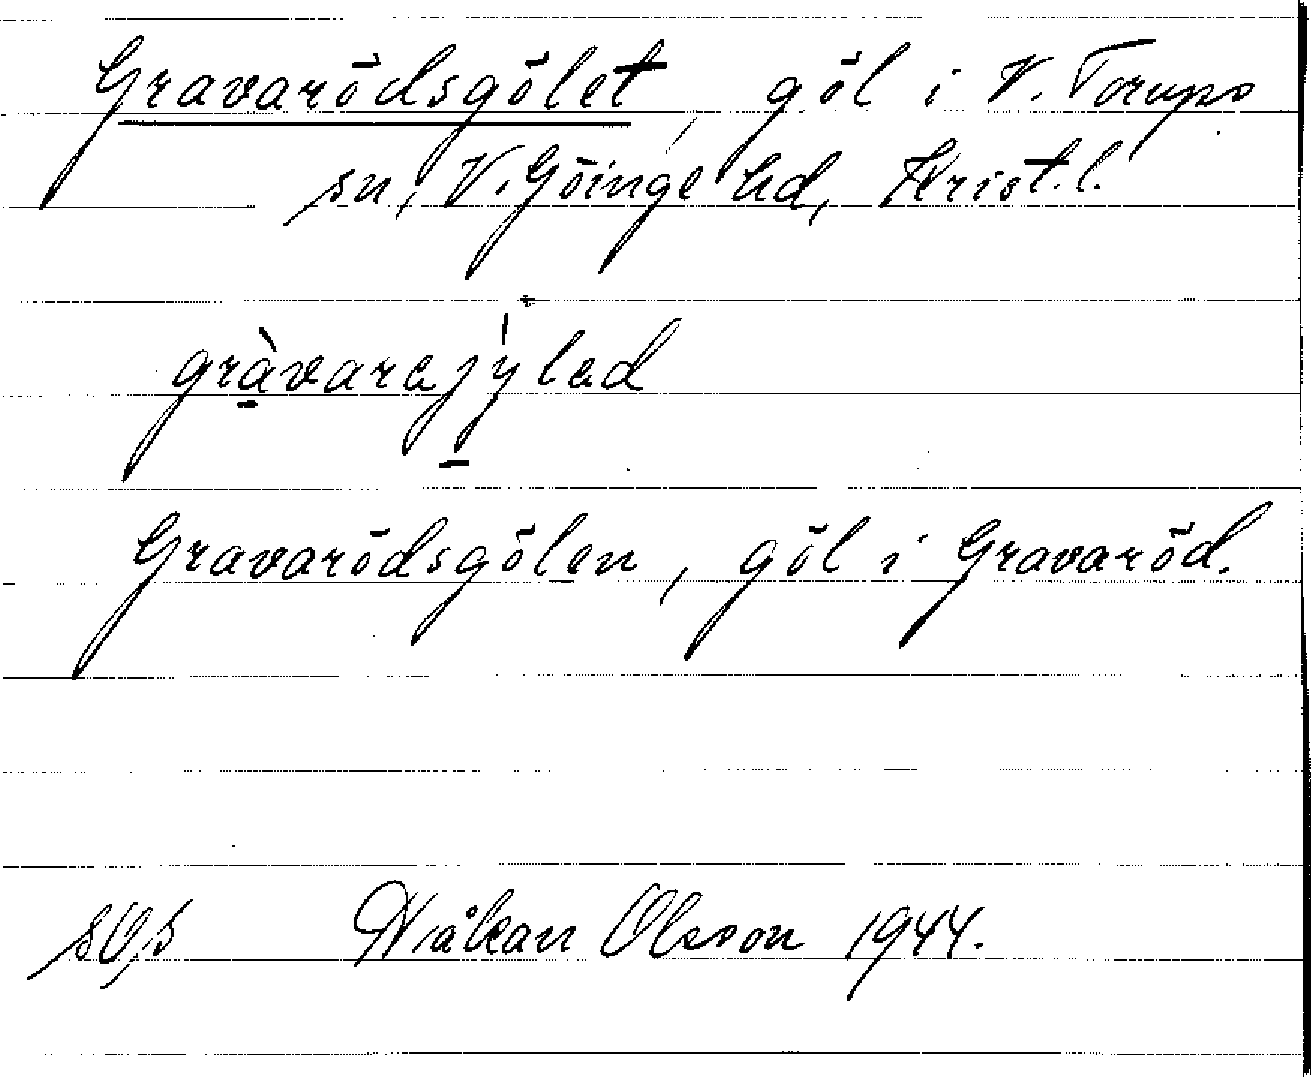 Gravarödsgölet, göl i V. Torups
sn, V. Göinge hd, Krist. l.
gràvaragýlad
Gravarödsgölen, göl i Gravaröd.
Håkan Olsson 1944.